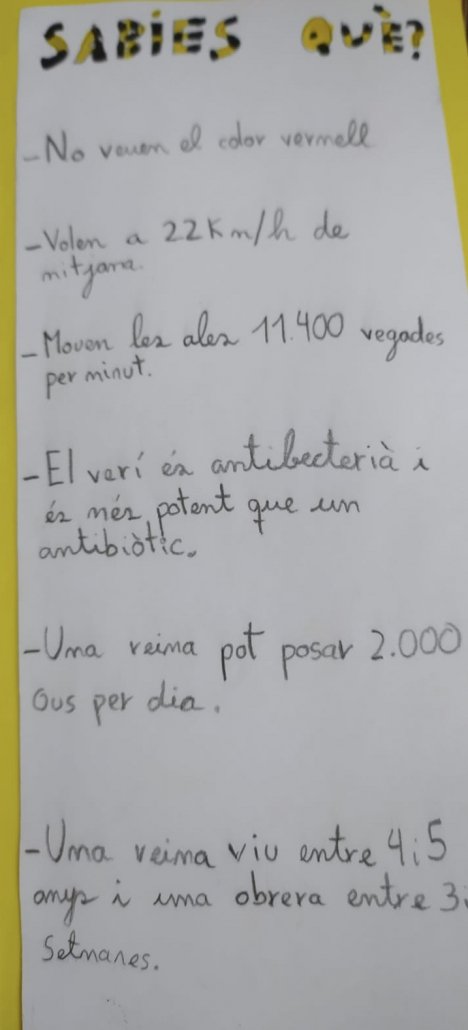 SABIES QUÈ?
-No veuen el color vermell
-Volen a 22Km/h de
mitjana.
-Mouen les ales 11.400 vegades
per minut.
-El verí és antibecterià i
és més potent que un
antibiòtic.
-Una reina pot posar 2.000
ous per dia.
-Una reina viu entre 4i5
anys i una obrera entre 3i
Setmanes.